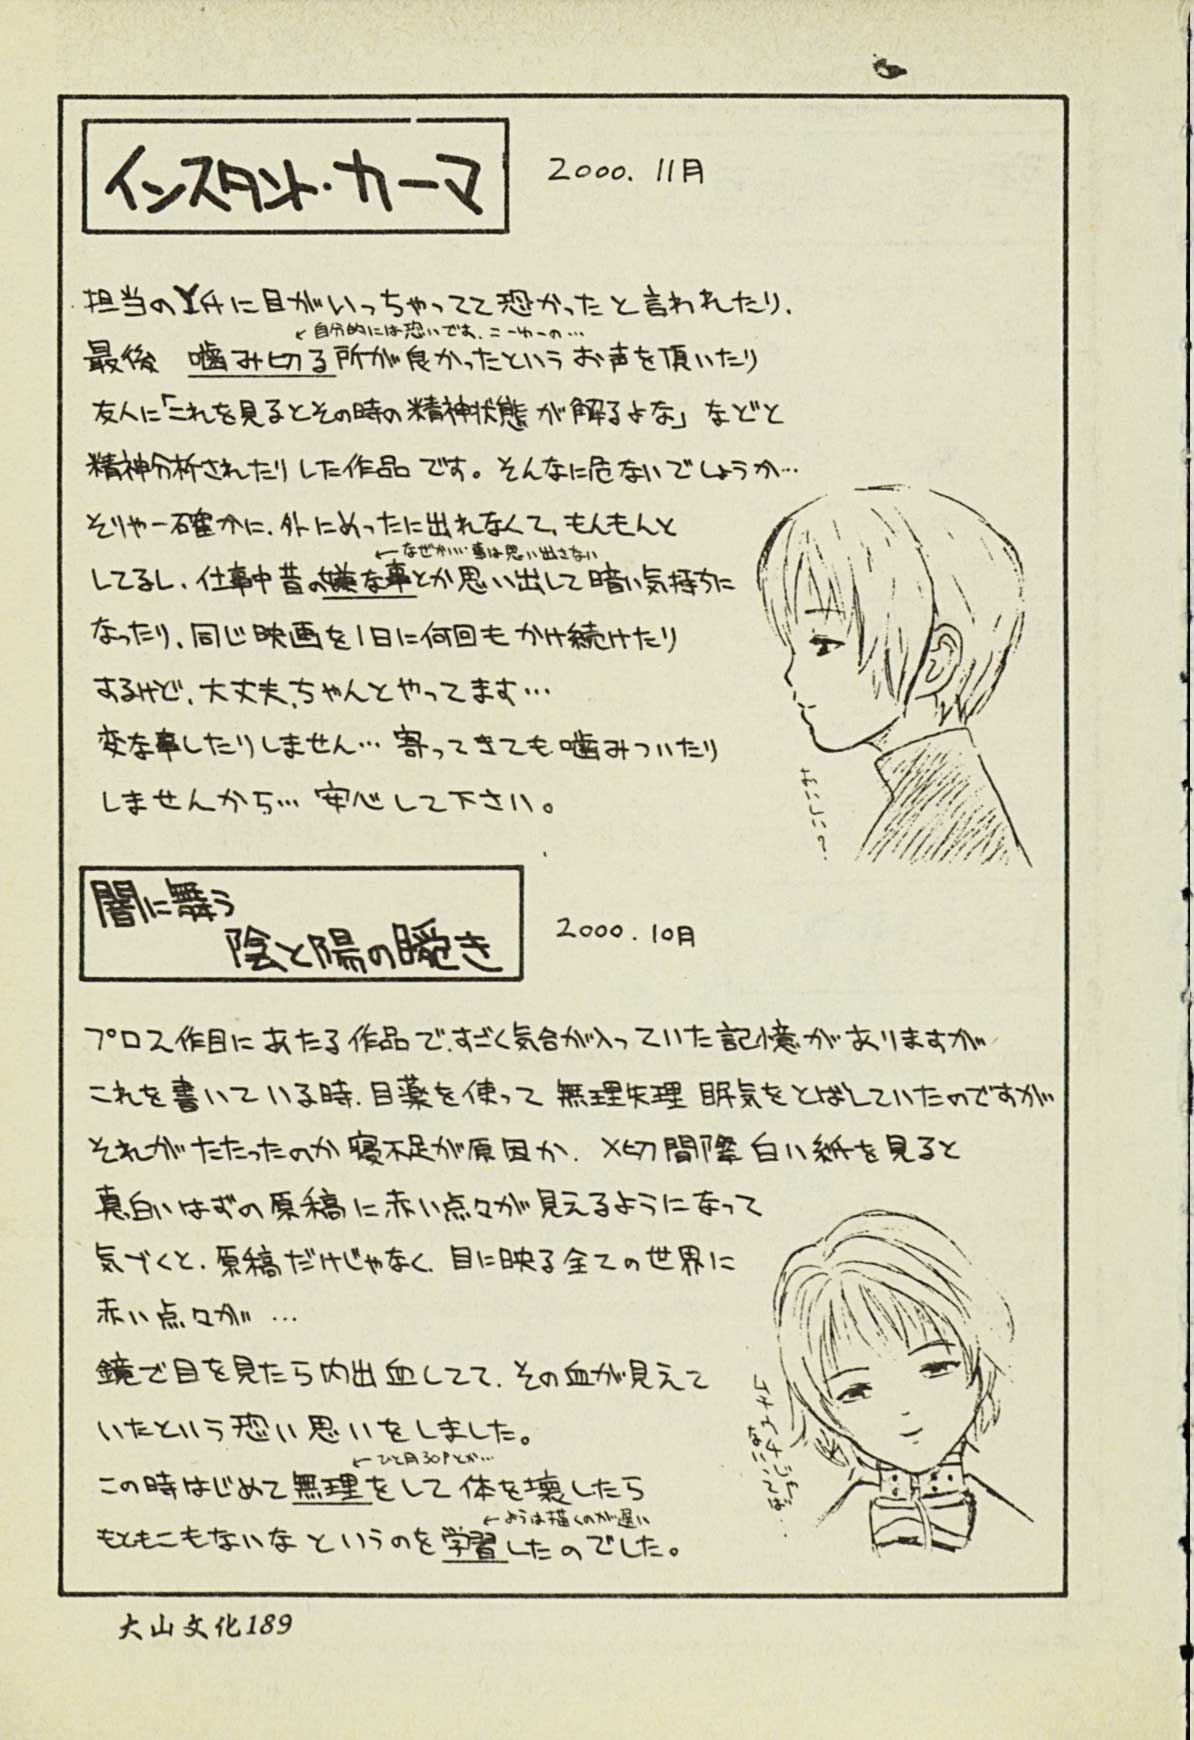 インスタント・カーマ
2000. 11月
担当のYさんに目がいっちゃってて恐かったと言われたり、
←自分的には恐いです、こーゆーの…
最後 噛み切る所が良かったというお声を頂いたり
友人に「これを見るとその時の精神状態が解るよな」などと
精神分析されたりした作品です。そんなに危ないでしょうか…
そりゃー確かに、外にめったに出れなくて、もんもんと
←なぜかいい事は思い出さない
してるし、仕事中昔の嫌な事とか思い出して暗い気持ちに
なったり、同じ映画を1日に何回もかけ続けたり
するけど、大丈夫、ちゃんとやってます…
変な事したりしません…寄ってきても噛みついたり
しませんから…安心して下さい。
おいしい?
闇に舞う
陰と陽の瞬き
2000. 10月
プロ2作目にあたる作品で、すごく気合が入っていた記憶がありますが
これを書いている時、目薬を使って無理矢理眠気をとばしていたのですが
それがたたったのか寝不足が原因か、〆切間際白い紙を見ると
真白いはずの原稿に赤い点々が見えるようになって
気づくと、原稿だけじゃなく、目に映る全ての世界に
赤い点々が…
鏡で目を見たら内出血してて、その血が見えて
いたという恐い思いをしました。
←ひと月30Pとか…
この時はじめて無理をして体を壊したら
←ようは描くのが遅い
もともこもないな というのを学習したのでした。
大山文化189